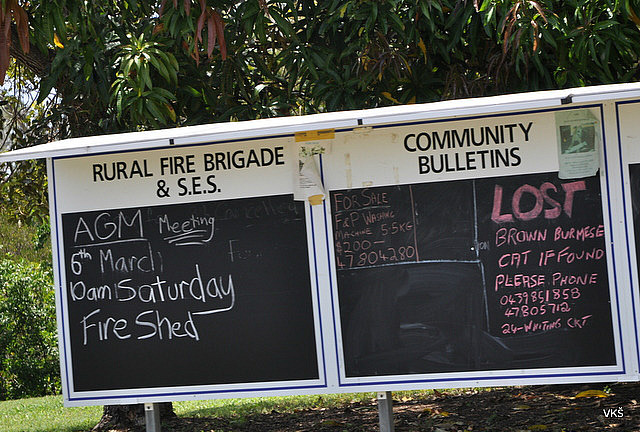 RURAL FIRE BRIGADE
& S.E.S.
AGM Meeting
6th March
10am Saturday
Fire Shed
COMMUNITY
BULLETINS
FOR SALE
F&P WASHING
MACHINE 5.5KG
$200-
47804280
LOST
BROWN BURMESE
CAT IF FOUND
PLEASE PHONE
0439851858
47805712
24-WHITING CRT
VKŠ